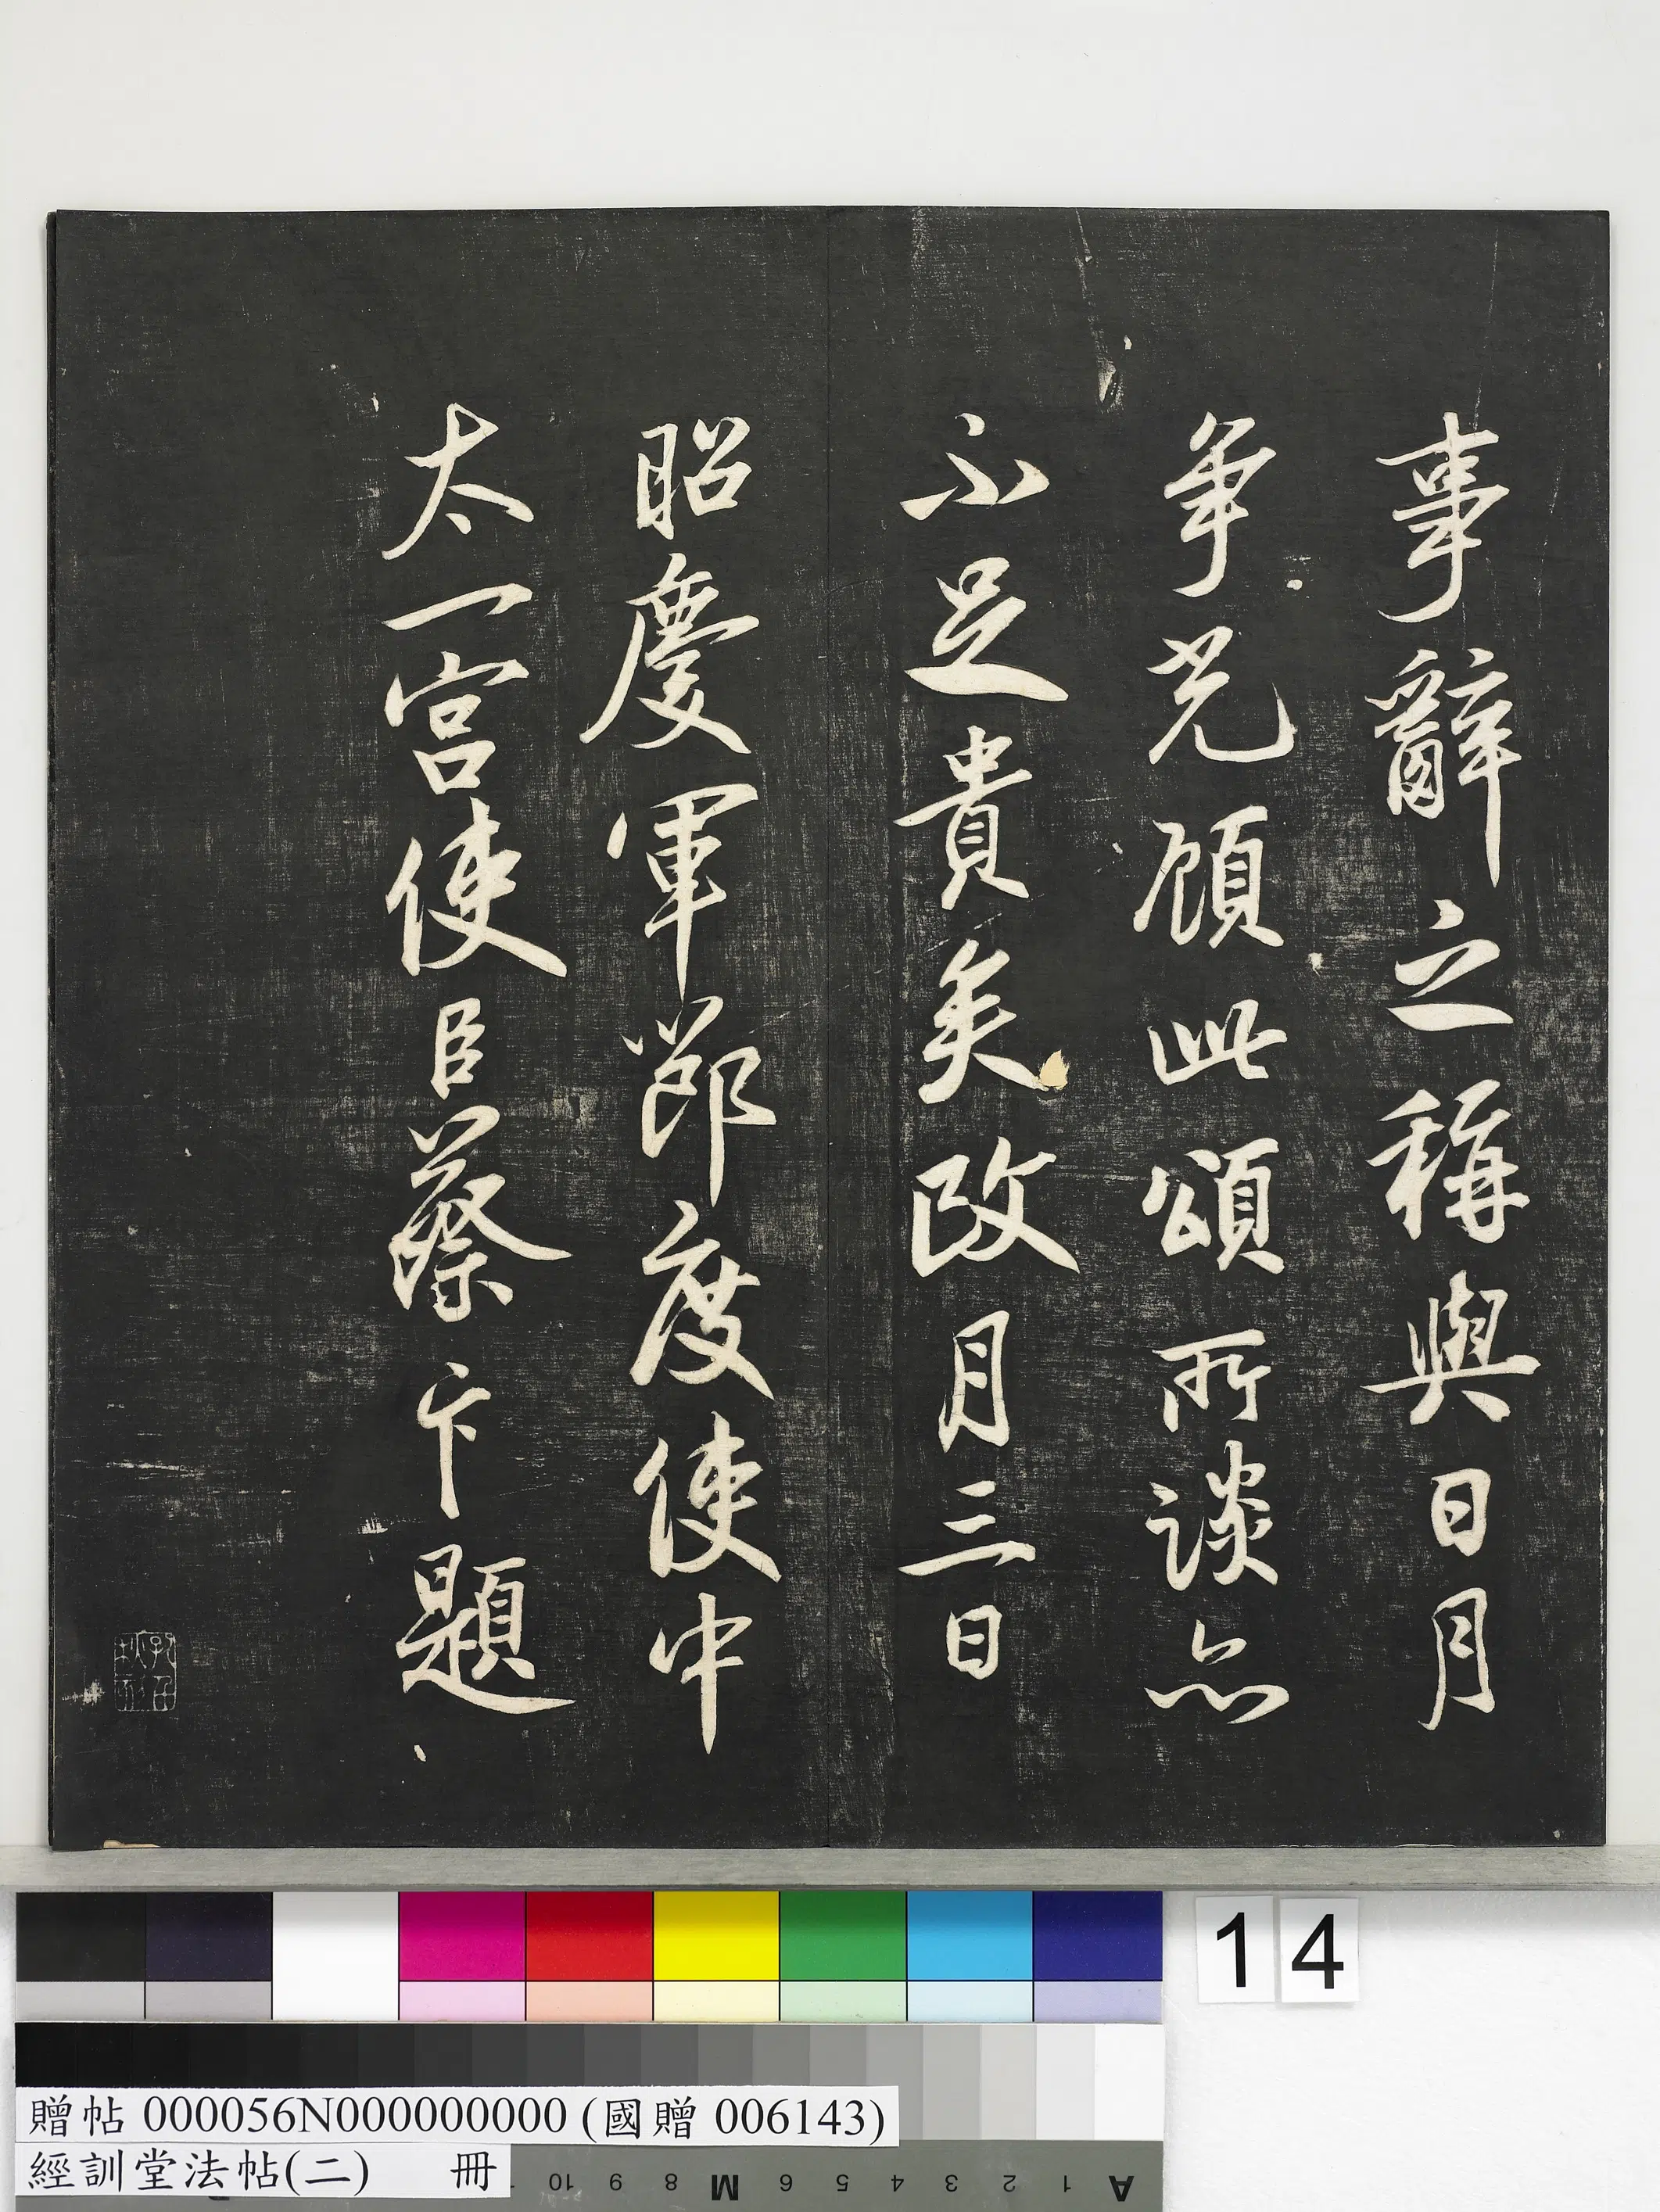 事辭之稱與日月
争光顧此頌所談亦
不足貴矣政月三日
昭慶軍節度使中
太一宮使臣蔡卞題
14
贈帖 000056N000000000 (國贈 006143)
經訓堂法帖(二) 冊
10 9 8 M 6 5 4 3 2 1 A